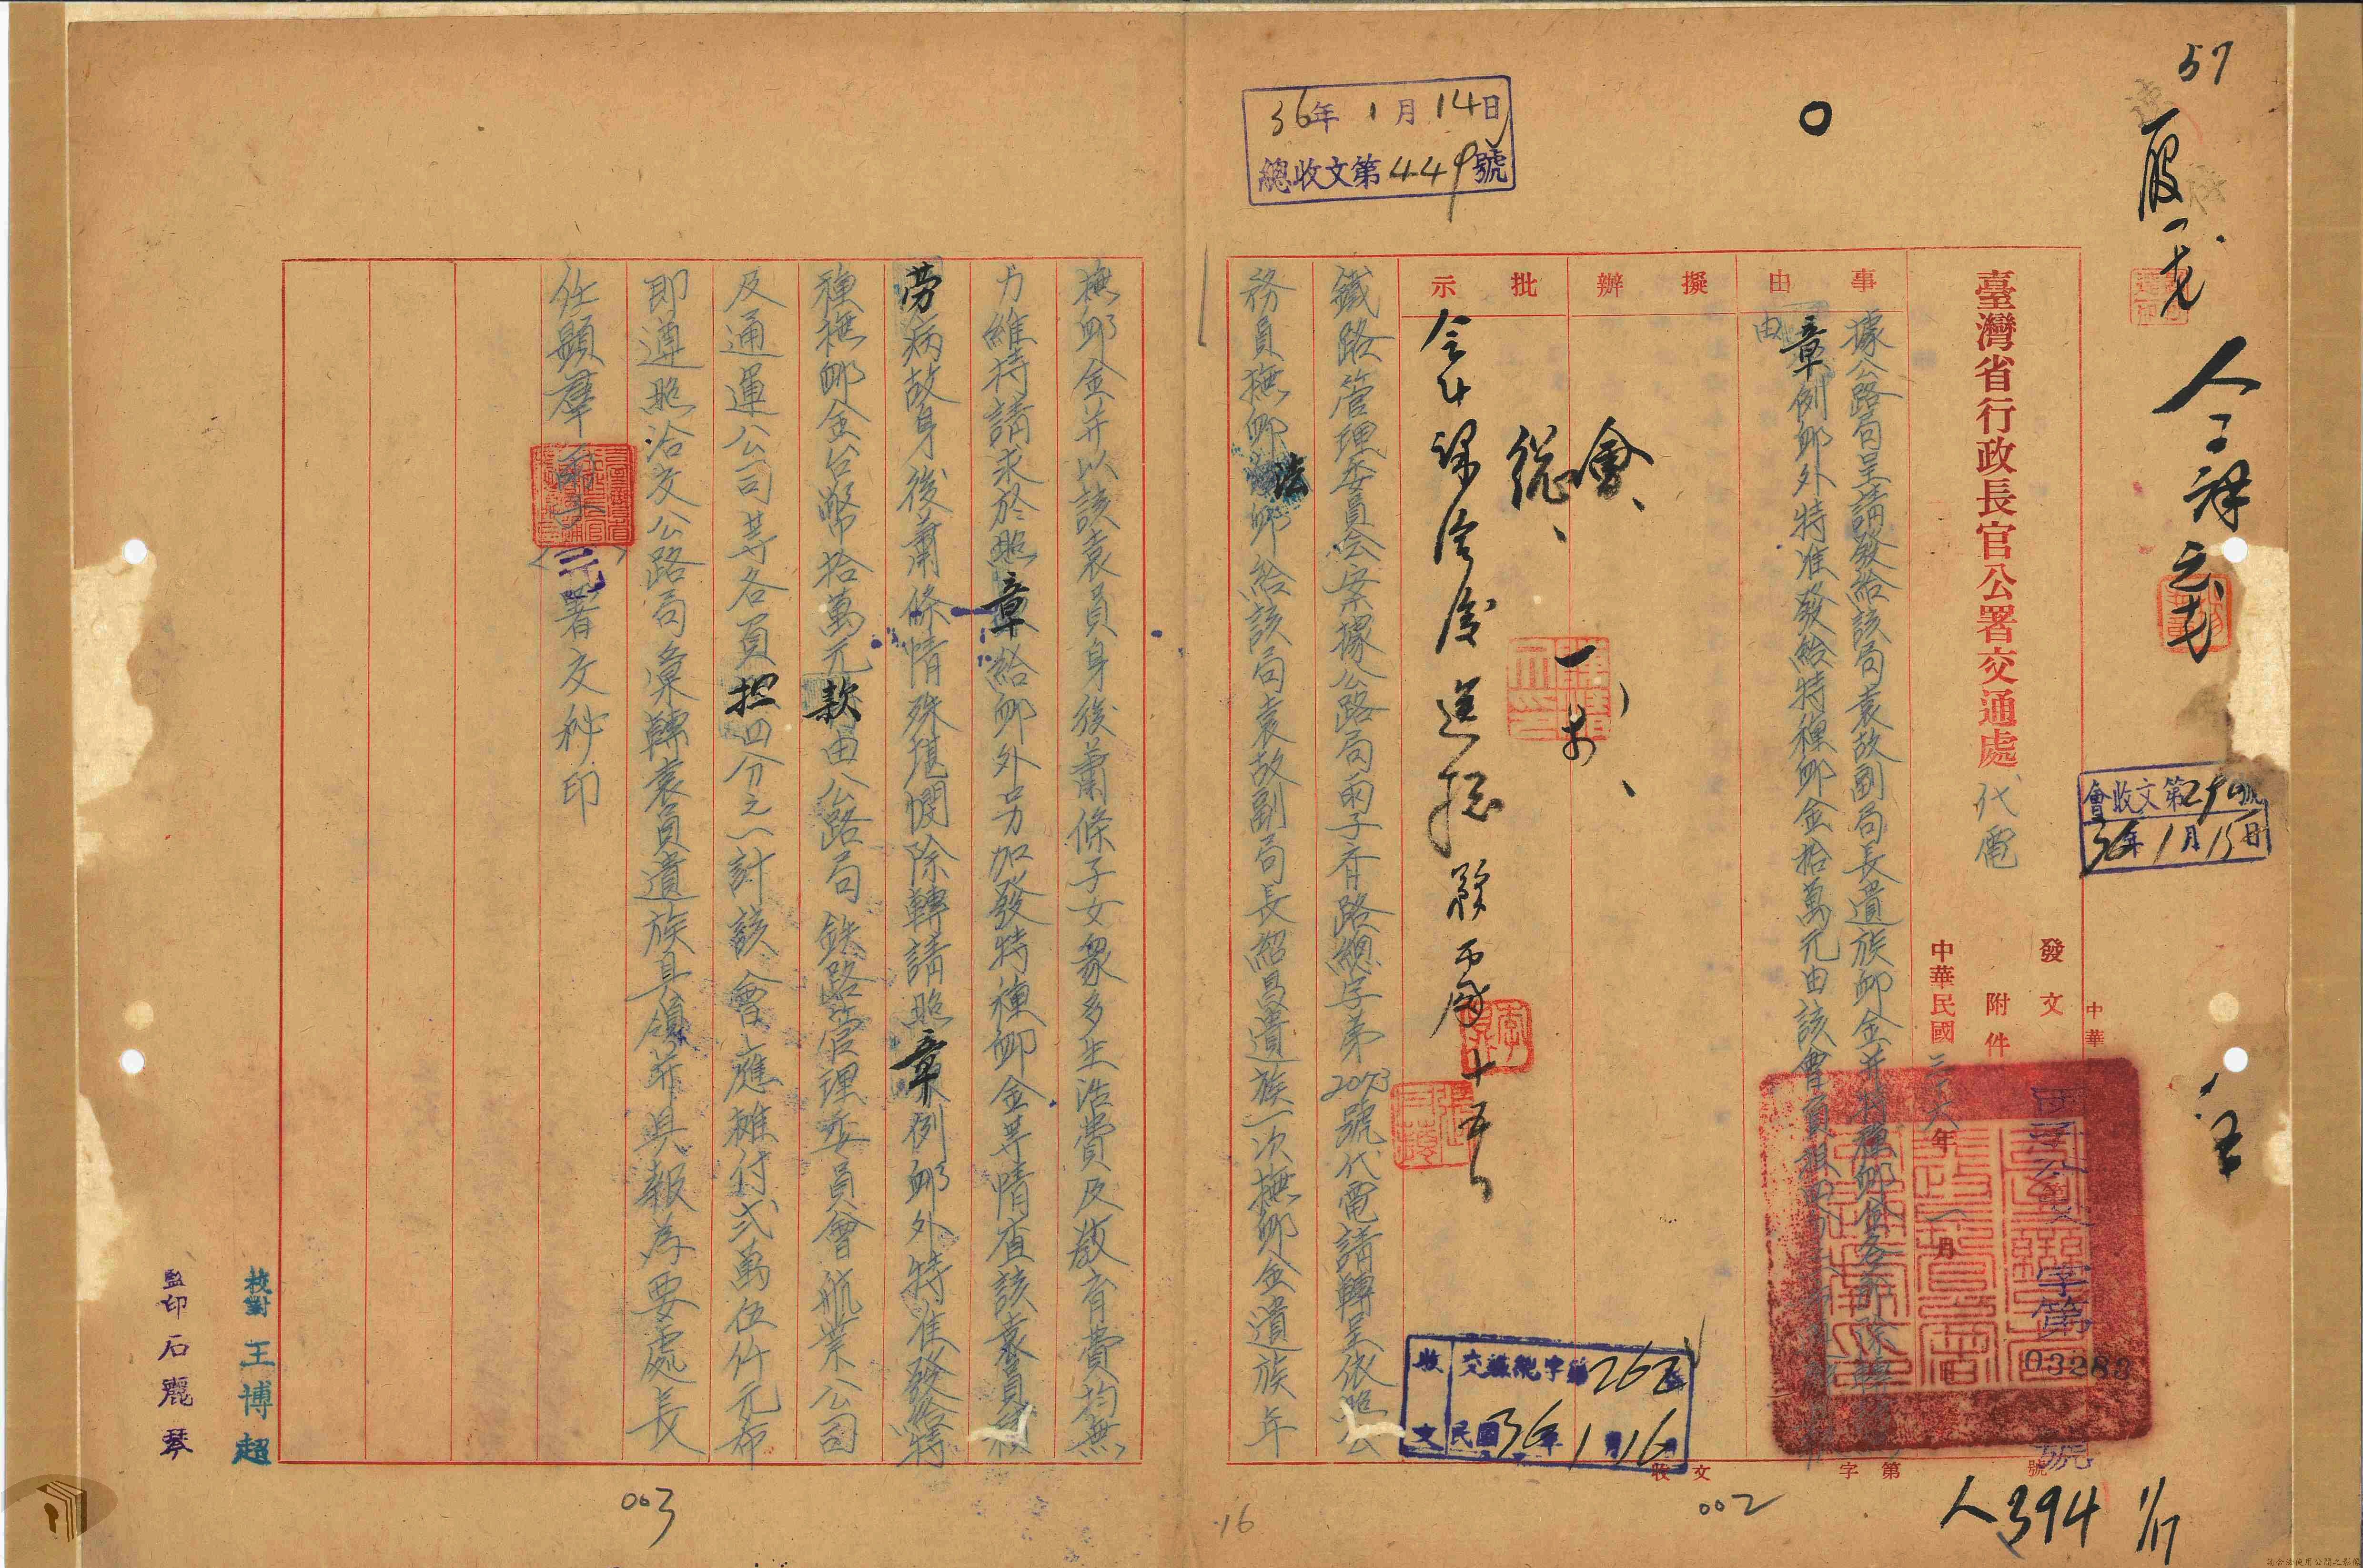 57
臺灣省行政長官公署交通處代電
發文
附件
中華民國三十六年一月
字第03283號
事由
擬辦
批示
據公路局呈請發給該局袁故副局長遺族卹金并特種卹金
章例卹外特准發給特種卹金拾萬元由該會
由
會
總
36年1月14日
總收文第449號
會收文第29號
36年1月15日
收文
民國36年1月16日
鐵路管理委員会案據公路局雨子府路總字第2073號代電請轉呈依照公
務員撫卹法卹給該局袁故副局長紹昌遺族一次撫卹金遺族年
撫卹金并以該袁員身後蕭條子女眾多生活費及教育費均無
力維持請求於照章給卹外另加發特種卹金等情查該袁員積
勞病故身後蕭條情殊堪憫除轉請照章例卹外特准發給特
種撫卹金台幣拾萬元款由公路局鉄路管理委員會航業公司
及通運公司等各負担四分之一計該會應攤付弍萬伍仟元希
即遵照洽交公路局彙轉袁員遺族具領并具報為要處長
任顯羣
署交秘印
校對王博超
監印石麗琴
收文
字第
號
002
003
16
人394
1/17